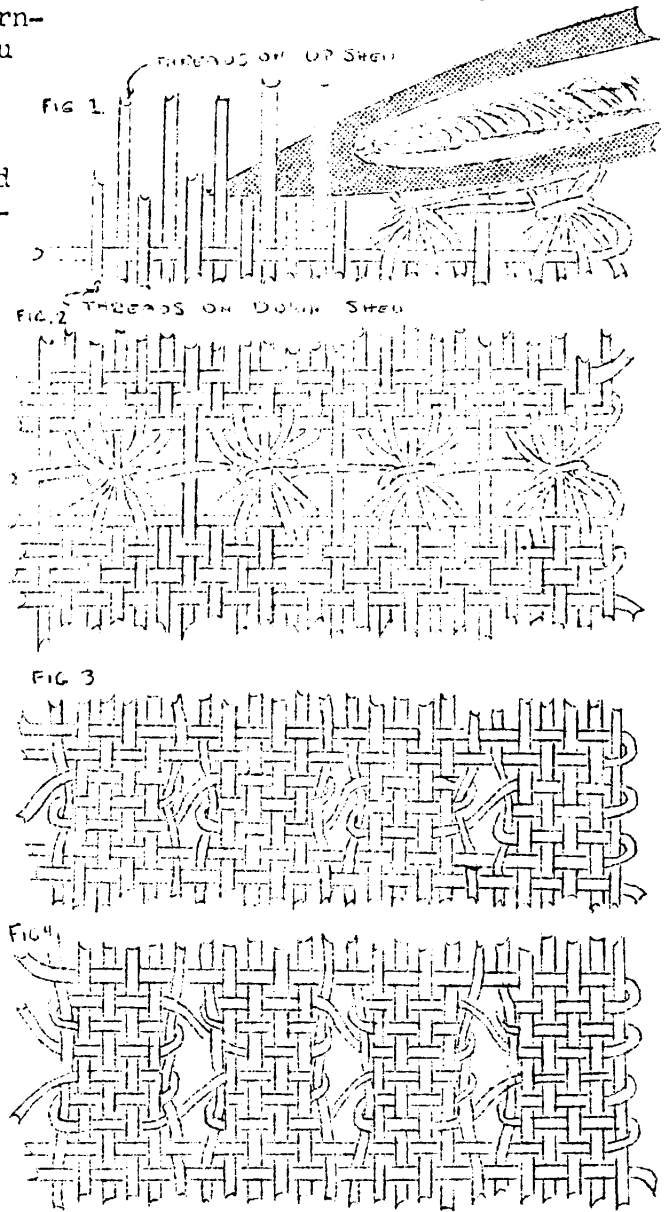 rn-
u
THREADS ON UP SHED
FIG 1.
d
-
THREADS ON DOWN SHED
FIG. 2
FIG 3
FIG 4